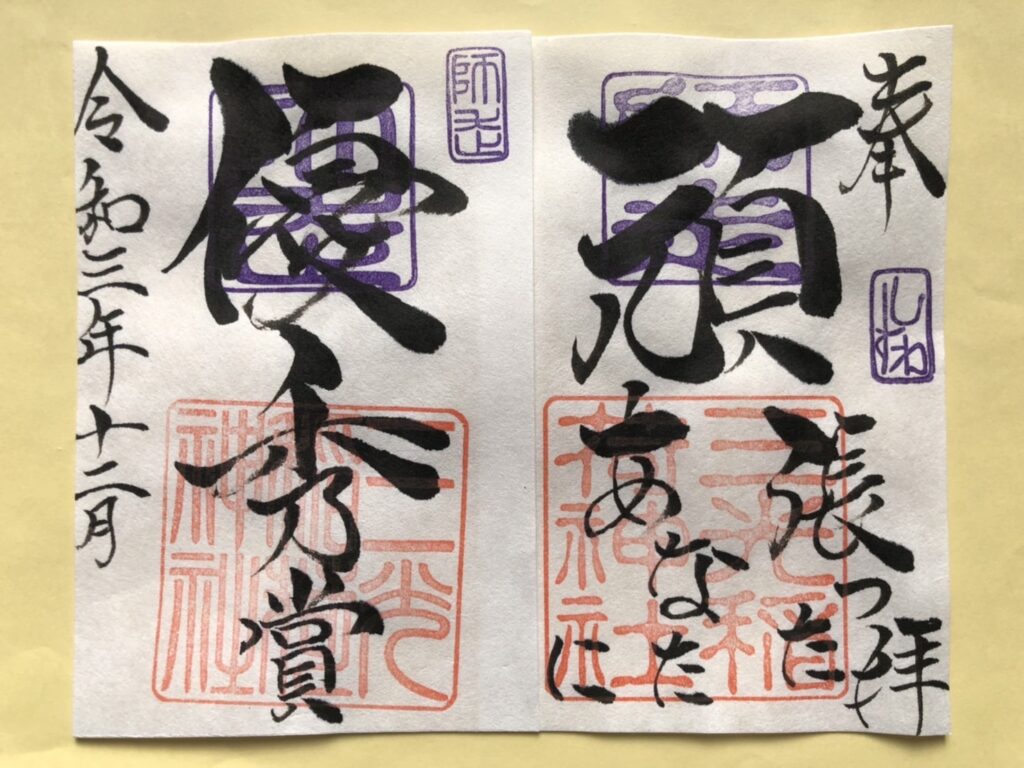 奉拝
頑張った
あなたに
三光稲
荷神社
優秀賞
師走
三光
稲荷
神社
令和三年十二月